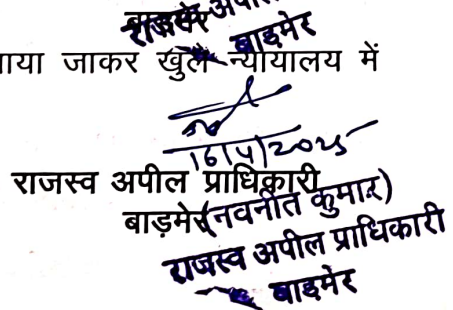 बाड़मेर
ाया जाकर खुले न्यायालय में
16/4/2025
राजस्व अपील प्राधिकारी
बाड़मेर (नवनीत कुमार)
राजस्व अपील प्राधिकारी
बाड़मेर